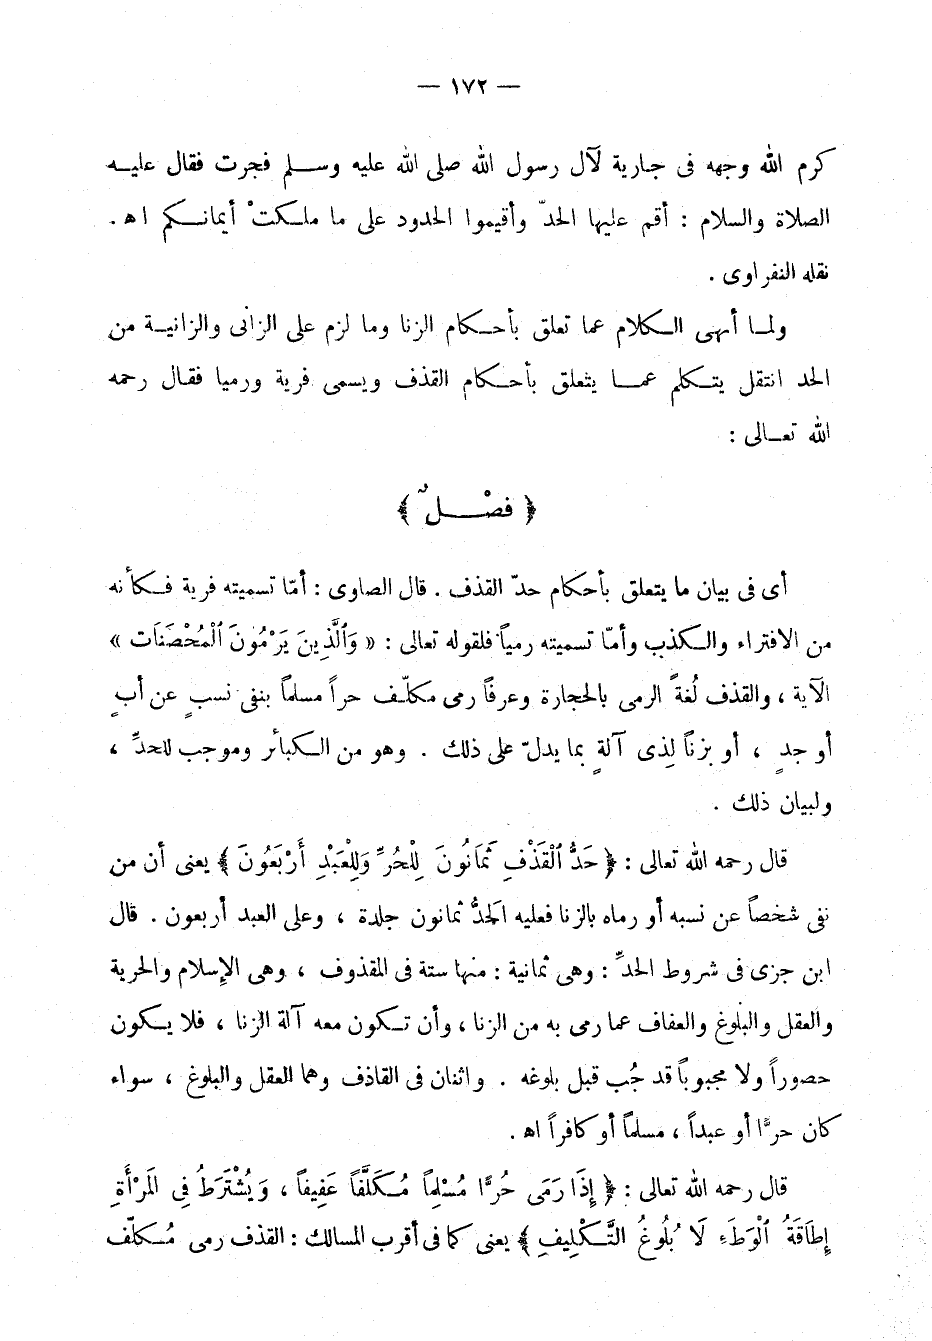 — ١٧٢ —
كرم الله وجهه فى جارية لآل رسول الله صلى الله عليه وسلم فجرت فقال عليه
الصلاة والسلام : أقم عليها الحدّ وأقيموا الحدود على ما ملكتْ أيمانكم اه .
نقله النفراوى .
ولما أنهى الكلام عما تعلق بأحكام الزنا وما لزم على الزانى والزانية من
الحد انتقل يتكلم عما يتعلق بأحكام القذف ويسمى فرية ورميا فقال رحمه
الله تعالى :
﴿ فصْلٌ ﴾
أى فى بيان ما يتعلق بأحكام حدّ القذف . قال الصاوى : أمّا تسميته فرية فكأنه
من الافتراء والكذب وأمّا تسميته رمياً فلقوله تعالى : « وَٱلَّذِينَ يَرْمُونَ ٱلْمُحْصَنَات »
الآية ، والقذف لُغةً الرمى بالحجارة وعرفاً رمى مكلّف حراً مسلماً بنفى نسبٍ عن أبٍ
أو جدٍ ، أو بزناً لِذى آلةٍ بما يدلّ على ذلك . وهو من الكبائر وموجب للحدِّ ،
ولبيان ذلك .
قال رحمه الله تعالى : ﴿ حَدُّ ٱلْقَذْفِ ثَمَانُونَ لِلْحُرِّ وَلِلْعَبْدِ أَرْبَعُونَ ﴾ يعنى أن من
نفى شخصاً عن نسبه أو رماه بالزنا فعليه الحدُّ ثمانون جلدة ، وعلى العبد أربعون . قال
ابن جزى فى شروط الحدِّ : وهى ثمانية : منها ستة فى المقذوف ، وهى الإسلام والحرية
والعقل والبلوغ والعفاف عما رمى به من الزنا ، وأن تكون معه آلة الزنا ، فلا يكون
حصوراً ولا مجبوباً قد جُب قبل بلوغه . واثنان فى القاذف وهما العقل والبلوغ ، سواء
كان حرًّا أو عبداً ، مسلماً أو كافراً اه .
قال رحمه الله تعالى : ﴿ إِذَا رَمَى حُرًّا مُسْلِماً مُكَلَّفاً عَفِيفاً ، وَيُشْتَرَطُ فِى المَرْأَةِ
إِطَاقَةُ ٱلْوَطْءِ لَا بُلُوغُ التَّكْلِيفِ ﴾ يعنى كما فى أقرب المسالك : القذف رمى مُكلّف